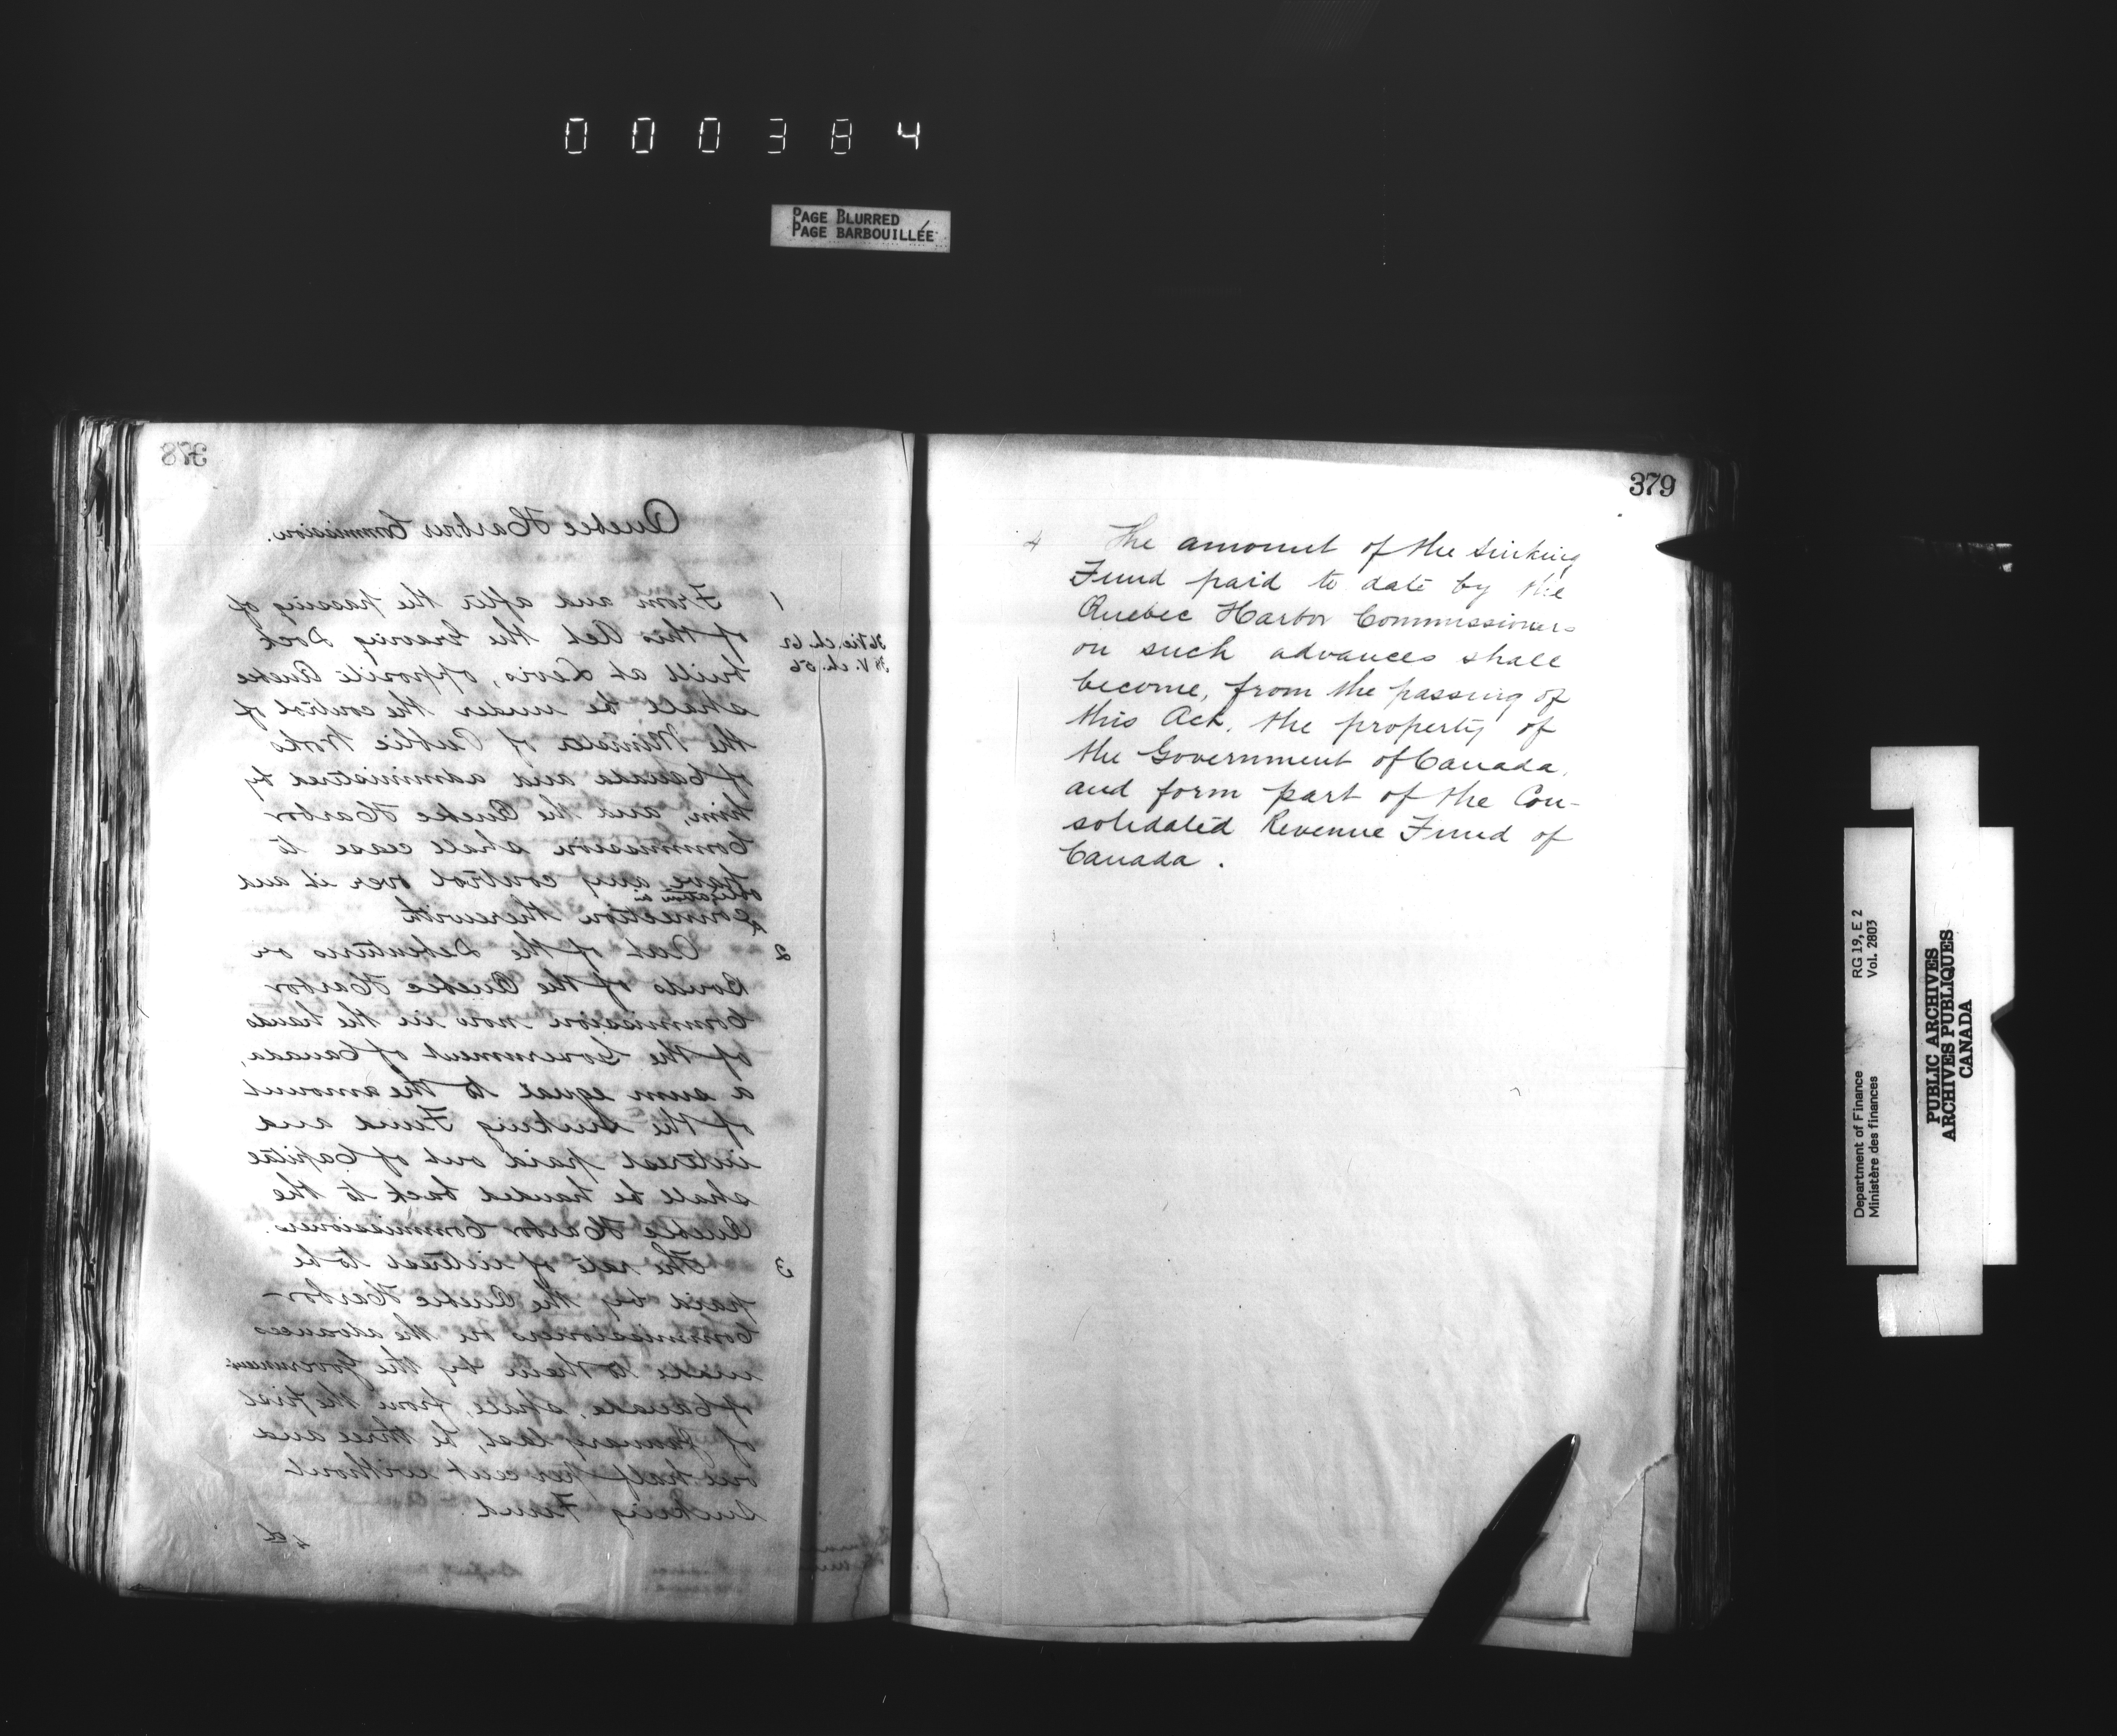 000384
PAGE BLURRED
PAGE BARBOUILLÉE
378
Quebec Harbour Commission.
1 From and after the passing of
36 Vic. ch. 62 of this Act the Graving Dock
38 V. ch. 56 built at Levis, opposite Quebec
shall be under the control of
the Minister of Public Works
of Canada and administered by
him, and the Quebec Harbor
Commission shall cease to
have any control over it and
obligation in
connection therewith
2 Out of the Debentures or
Bonds of the Quebec Harbor
Commission now in the hands
of the Government of Canada,
a sum equal to the amount
of the Sinking Fund and
interest paid out of Capital
shall be handed back to the
Quebec Harbor Commissioners.
3 The rate of interest to be
paid by the Quebec Harbor
Commissioners on the advances
made to them by the Government
of Canada, shall, from the first
of January last, be three and
one half per cent without
Sinking Fund.
379
4 The amount of the Sinking
Fund paid to date by the
Quebec Harbor Commissioners
on such advances shall
become, from the passing of
this Act, the property of
the Government of Canada,
and form part of the Con-
solidated Revenue Fund of
Canada.
Department of Finance RG 19, E 2
Ministère des finances Vol. 2803
PUBLIC ARCHIVES
ARCHIVES PUBLIQUES
CANADA